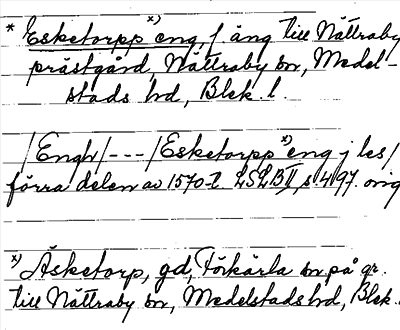 * Esketorpp x) eng, f. äng till Nättraby
prästgård, Nättraby sn, Medel-
stads hd, Blek. l.
/Engh/---/Esketorpp x) eng j les/
förra delen av 1570-t. LSLB II, s. 497. orig
x) Äsketorp, gd, Förkärla sn på gr.
till Nättraby sn, Medelstads hd, Blek.